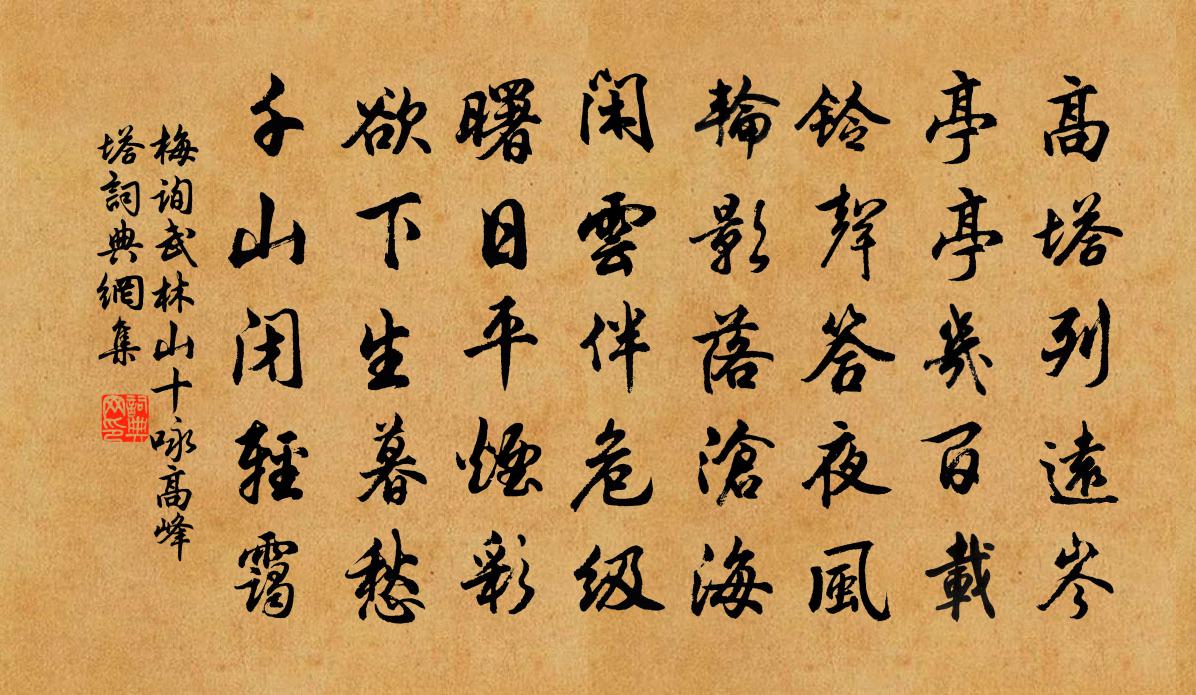 高塔列遠岑
亭亭幾百載
鈴聲答夜風
輪影落滄海
閑雲伴危級
曙日平煙彩
欲下生暮愁
千山閉輕靄
梅詢武林山十咏高峰
塔詞典網集
詞典
网印